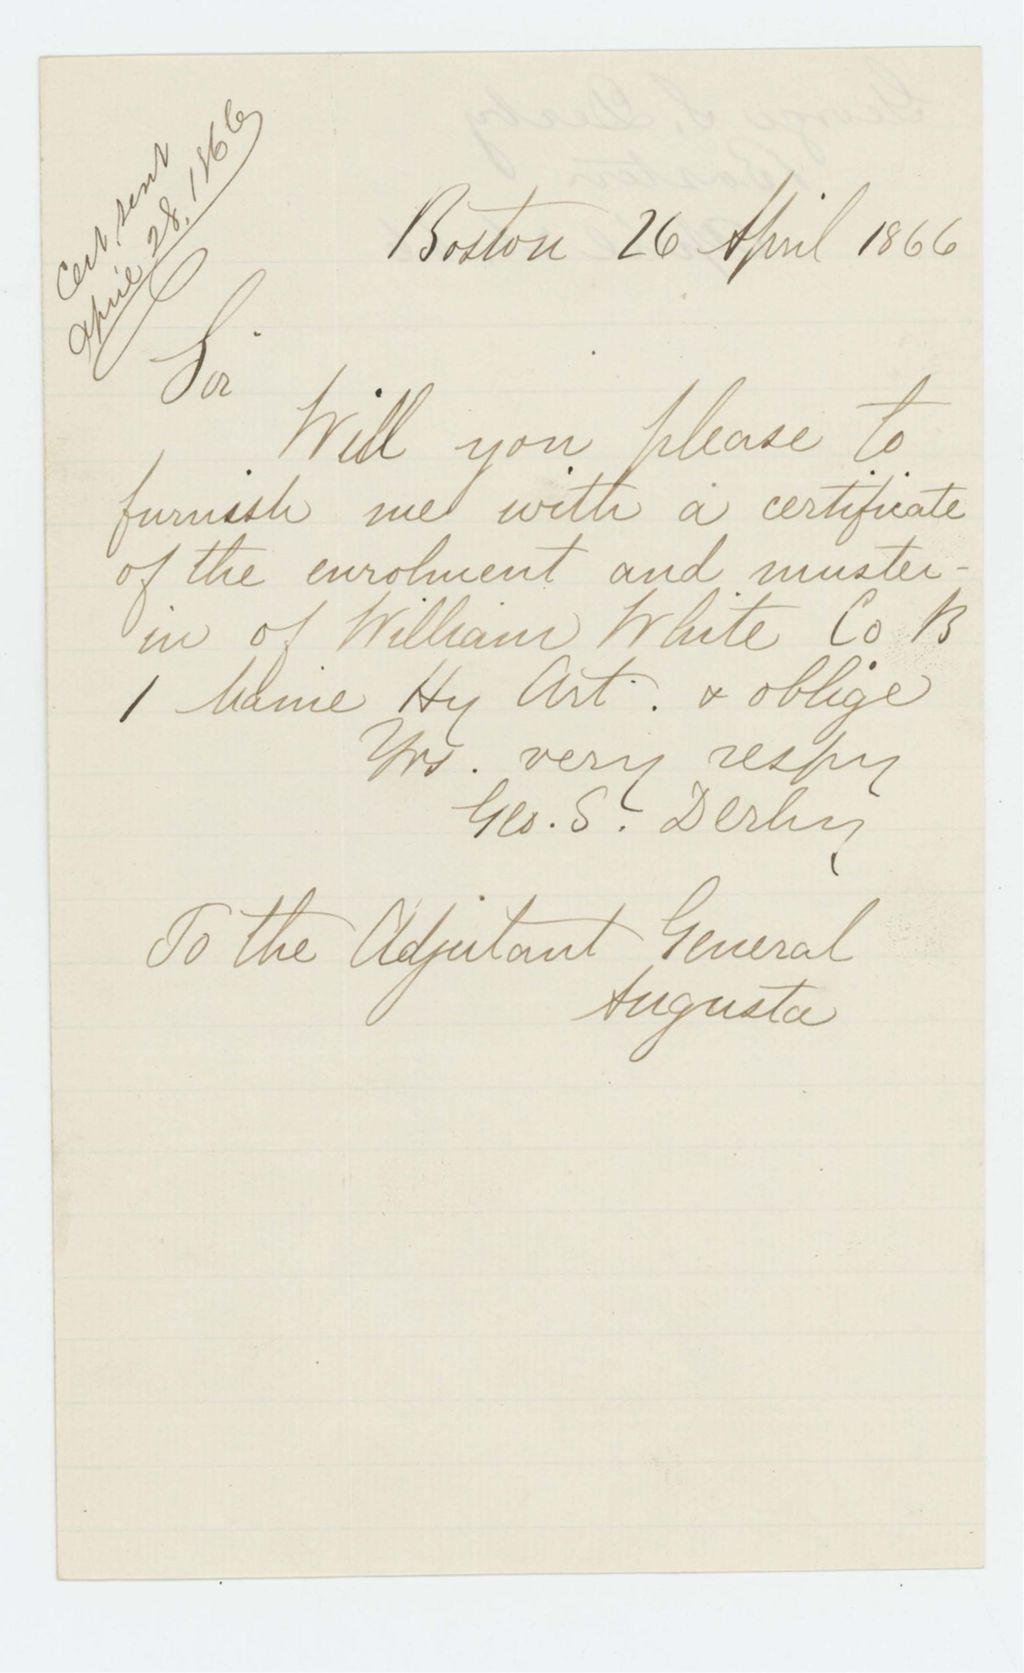 Cert. sent
April 28, 1866
Boston 26 April 1866
Sir
Will you please to
furnish me with a certificate
of the enrolment and muster-
in of William White Co B
1 Maine Hy Art. & oblige
Yrs. very respy
Geo. S. Derby
To the Adjutant General
Augusta
George S. Derby
Boston